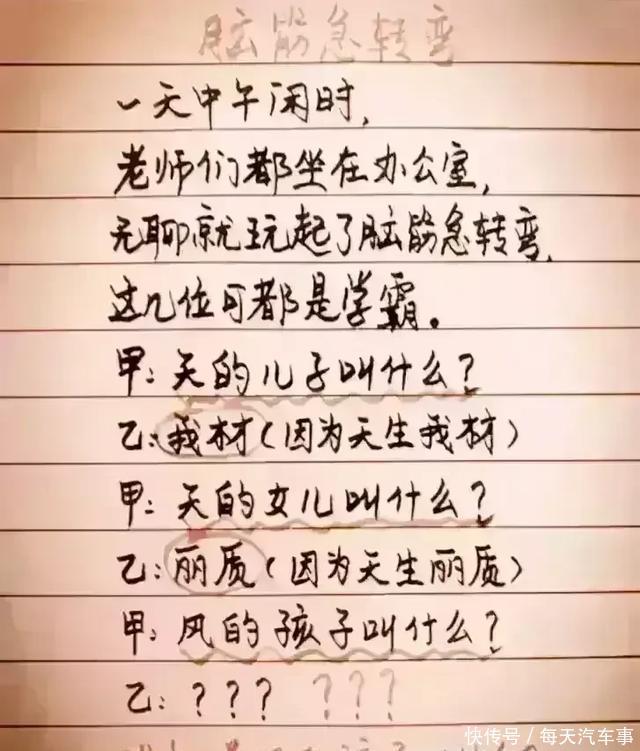 脑筋急转弯
一天中午闲时,
老师们都坐在办公室,
无聊就玩起了脑筋急转弯,
这几位可都是学霸。
甲:天的儿子叫什么?
乙:我材(因为天生我材)
甲:天的女儿叫什么?
乙:丽质(因为天生丽质)
甲:风的孩子叫什么?
乙:??? ???
快传号/每天汽车事